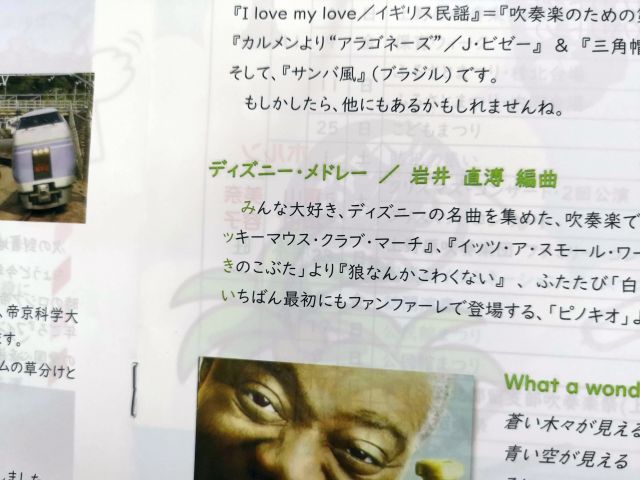 『I love my love／イギリス民謡』＝『吹奏楽のための
『カルメンより“アラゴネーズ”／J・ビゼー』 & 『三角帽
そして、『サンバ風』（ブラジル）です。
もしかしたら、他にもあるかもしれませんね。
ディズニー・メドレー ／ 岩井 直溥 編曲
みんな大好き、ディズニーの名曲を集めた、吹奏楽で
ッキーマウス・クラブ・マーチ』、『イッツ・ア・スモール・ワー
きのこぶた」より『狼なんかこわくない』 、ふたたび「白
いちばん最初にもファンファーレで登場する、「ピノキオ」よ
、帝京科学大
ます。
ムの草分けと
しました
What a wond
蒼い木々が見える
青い空が見える